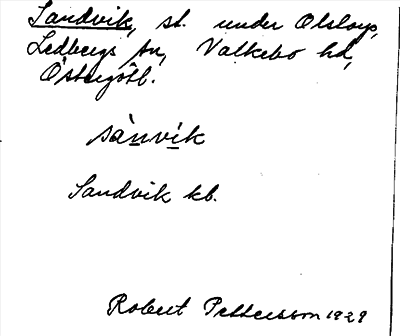 Sandvik, st. under Olstorp,
Ledbergs sn, Valkebo hd,
Östergötl.
sànvík
Sandvik kb.
Robert Pettersson 1929